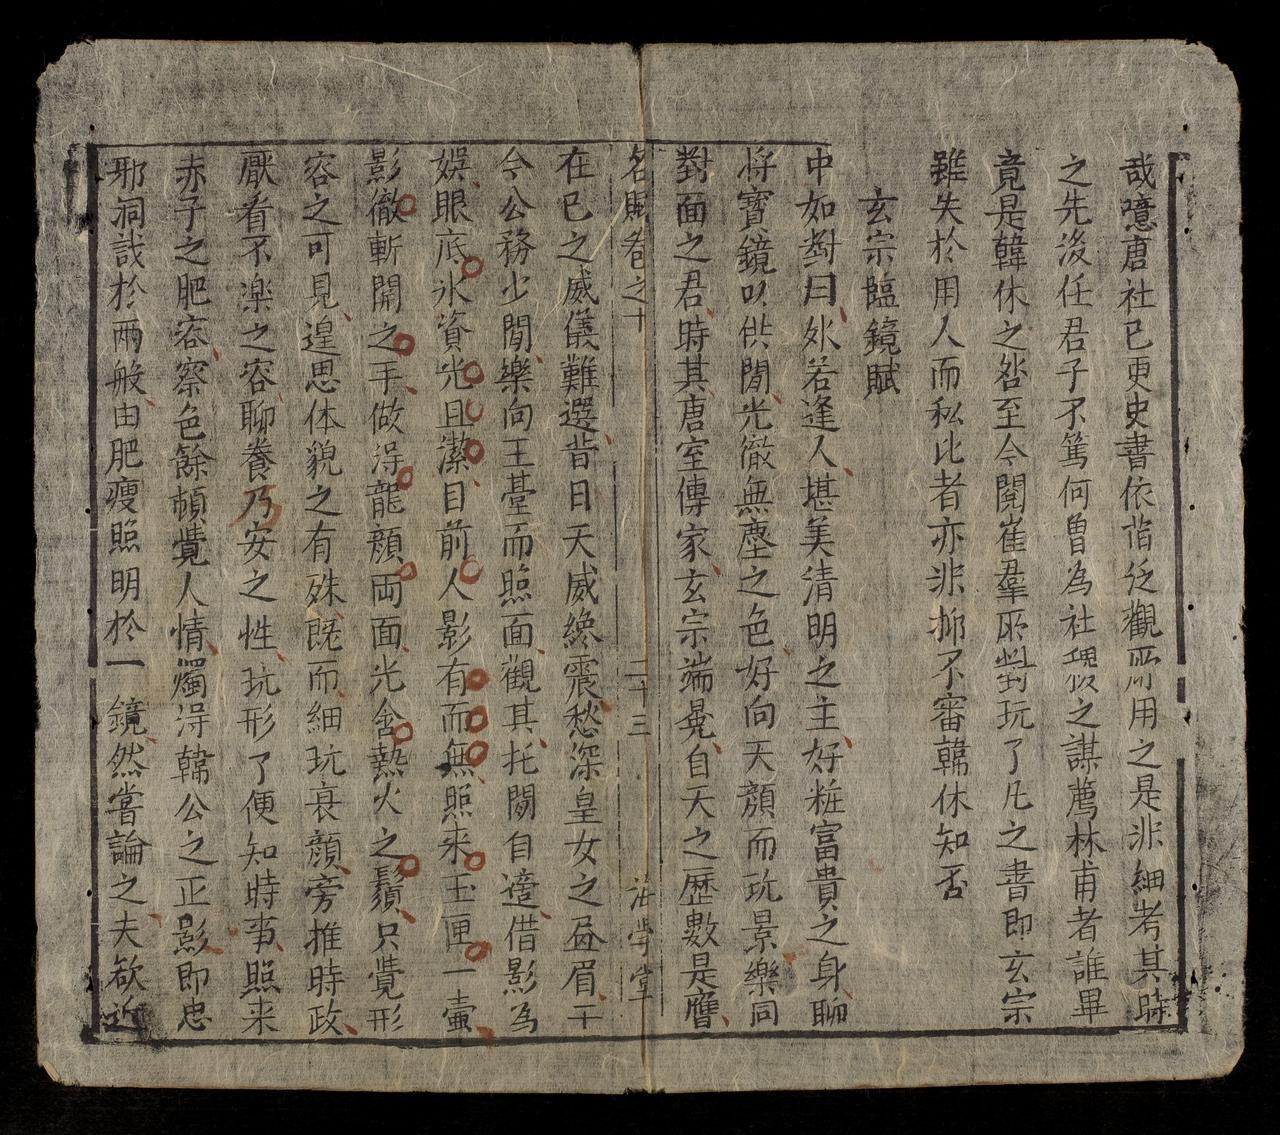 哉噫唐社已更史書依啙泛觀所用之是非細考其時
之先後任君子不篤何曾為社稷之謀薦林甫者誰畢
竟是韓休之咎至今閱崔羣所對玩了凡之書即玄宗
雖失於用人而私比者亦非抑不審韓休知否
玄宗臨鏡賦
中如對曰外若逢人堪美清明之主好粧富貴之身聊
將寶鏡以供閒光徹無塵之色好向天顔而玩景樂同
對面之君時其唐室傳家玄宗端冕自天之歷數是膺
名賦卷之十 二十三 海學堂
在巳之威儀難選昔日天威絶震愁深皇女之畫眉于
今公務少閒樂向王臺而照面觀其托閒自適借影為
娱眼底氷資光且潔目前人影有而無照来玉匣一壷
影徹斬開之手做淂龍顔両面光含熱火之鬚只覺形
容之可見遑思体貌之有殊既而細玩衰顔旁推時政
厭看不楽之容聊養乃安之性玩形了便知時事照来
赤子之肥容察色餘頓覺人情燭淂韓公之正影即忠
邪洞哉於兩般由肥瘦照明於一鏡然嘗論之夫欲近